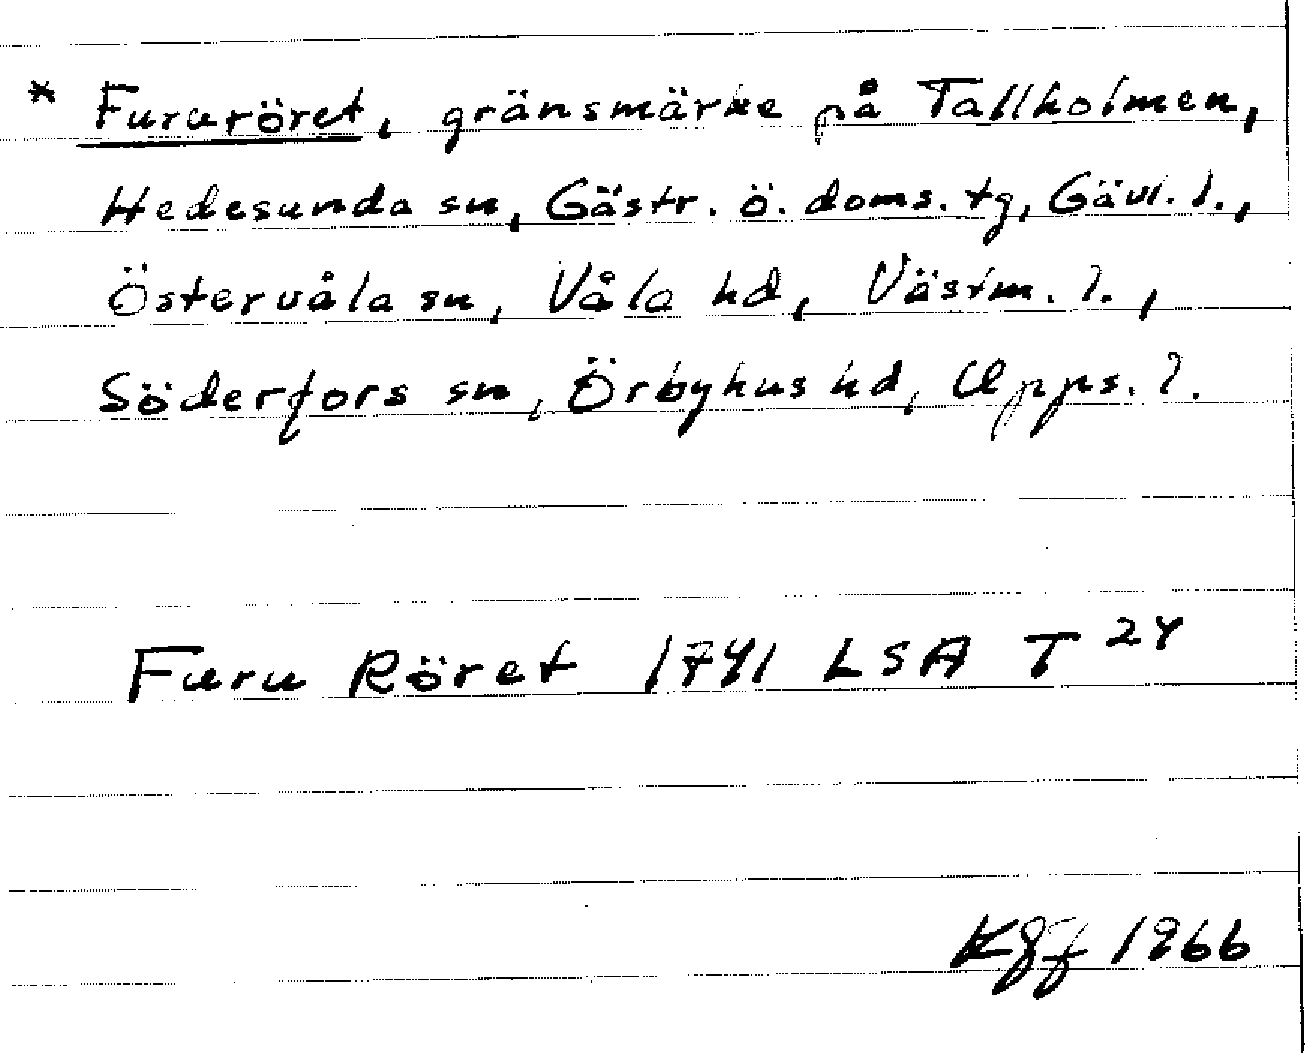 * Fururöret, gränsmärke på Tallholmen,
Hedesunda sn, Gästr. ö. doms. tg, Gävl. l.,
Östervåla sn, Våla hd, Västm. l.,
Söderfors sn, Örbyhus hd, Upps. l.
Furu Röret 1741 LSA T 24
1966